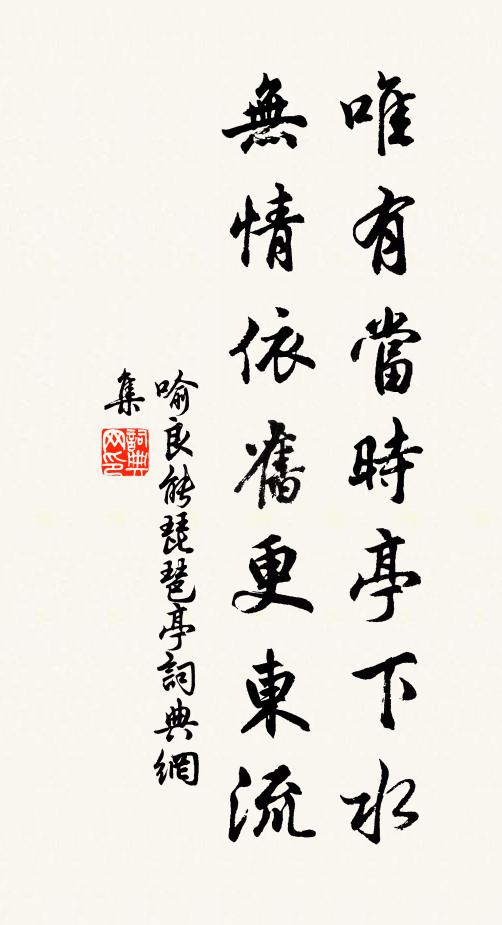 唯有當時亭下水
無情依舊更東流
喻良能琵琶亭詞典網
集
詞典網印